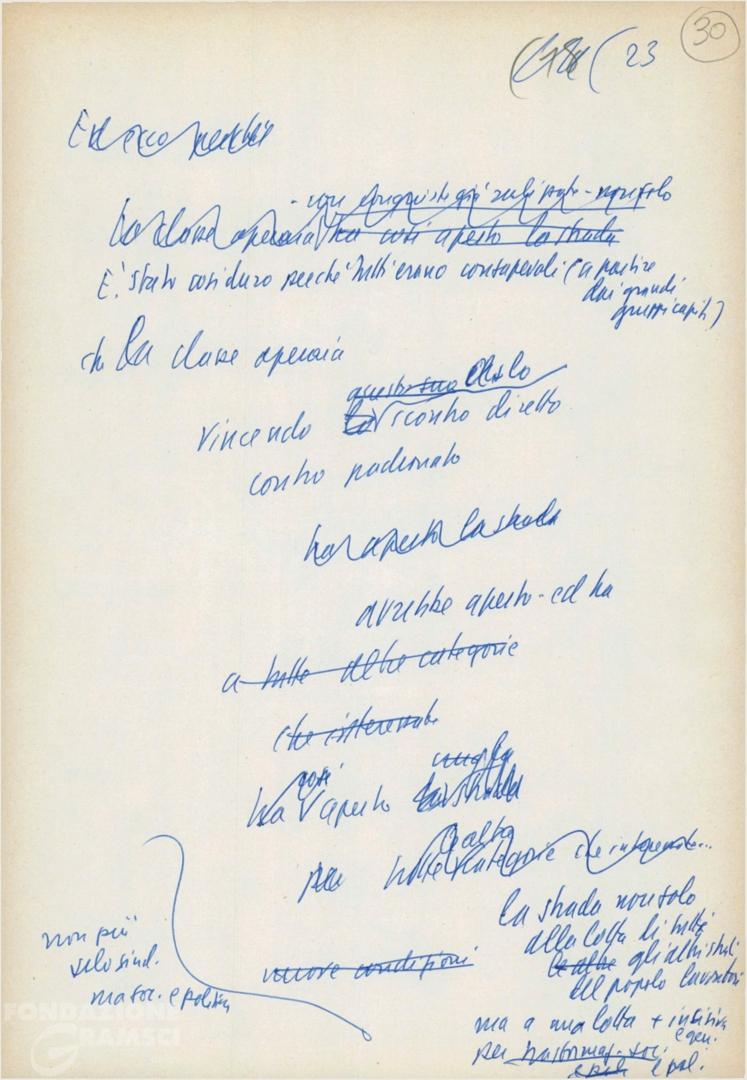 23 30
Ed ecco perché
- non solo
La classe operaia ha così aperto la strada
E' stato così duro perché tutti erano consapevoli (a partire
dai grandi
gruppi capit.)
che la classe operaia
questo suo
vincendo lo scontro diretto
contro padronato
ha aperto la strada
avrebbe aperto - ed ha
a tutte altre categorie
che
così
ha aperto la strada
le altre
per tutte categorie che
la strada non solo
alla lotta di tutti
le altre gli altri strati
del popolo lavoratore
non più
solo sind.
ma soc. e politica
nuove condizioni
ma a una lotta + incisiva
e gen.
per trasformaz. soc.
e pol. e pol.
FONDAZIONE
GRAMSCI